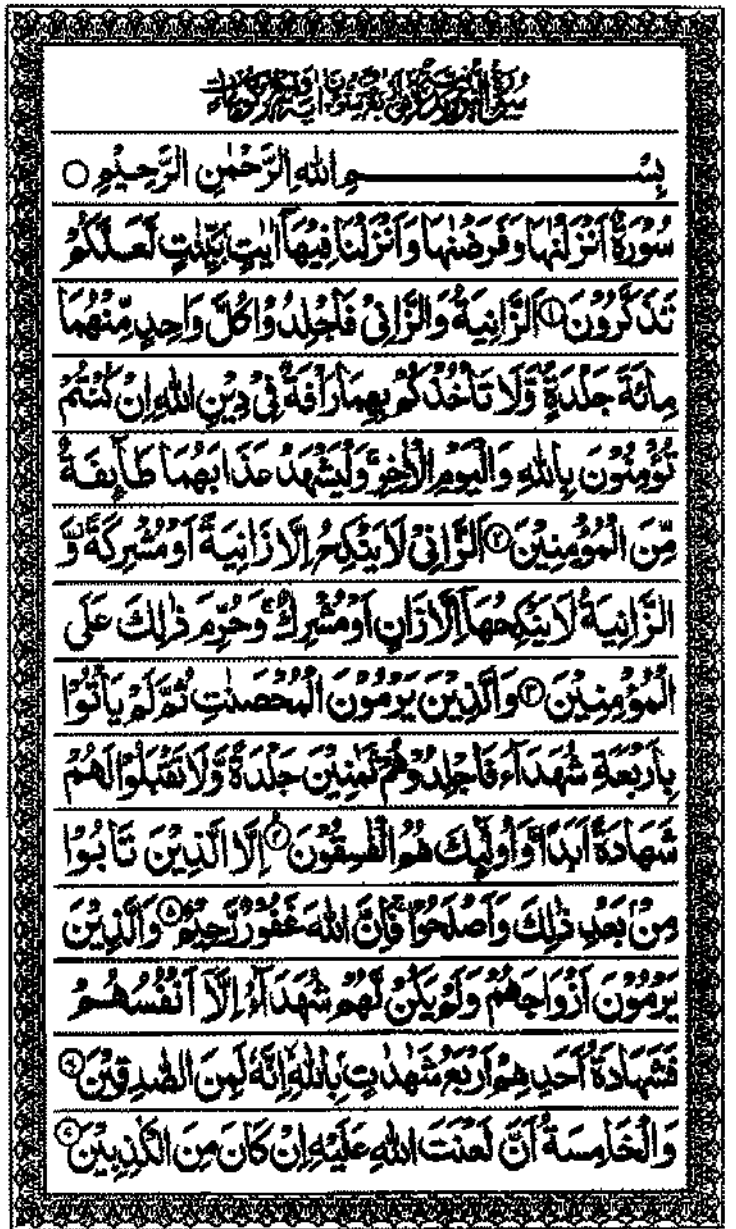 سُوْرَةُ النُّوْرِ
بِسْمِ اللهِ الرَّحْمٰنِ الرَّحِيْمِ ○
سُوْرَةٌ اَنْزَلْنٰهَا وَفَرَضْنٰهَا وَاَنْزَلْنَا فِيْهَآ اٰيٰتٍۭ بَيِّنٰتٍ لَّعَلَّكُمْ
تَذَكَّرُوْنَ ۝۱ اَلزَّانِيَةُ وَالزَّانِيْ فَاجْلِدُوْا كُلَّ وَاحِدٍ مِّنْهُمَا
مِائَةَ جَلْدَةٍ ۠ وَّلَا تَاْخُذْكُمْ بِهِمَا رَاْفَةٌ فِيْ دِيْنِ اللهِ اِنْ كُنْتُمْ
تُؤْمِنُوْنَ بِاللهِ وَالْيَوْمِ الْاٰخِرِ ۚ وَلْيَشْهَدْ عَذَابَهُمَا طَآئِفَةٌ
مِّنَ الْمُؤْمِنِيْنَ ۝۲ اَلزَّانِيْ لَا يَنْكِحُ اِلَّا زَانِيَةً اَوْ مُشْرِكَةً ۡ وَّ
الزَّانِيَةُ لَا يَنْكِحُهَآ اِلَّا زَانٍ اَوْ مُشْرِكٌ ۚ وَحُرِّمَ ذٰلِكَ عَلَى
الْمُؤْمِنِيْنَ ۝۳ وَالَّذِيْنَ يَرْمُوْنَ الْمُحْصَنٰتِ ثُمَّ لَمْ يَاْتُوْا
بِاَرْبَعَةِ شُهَدَآءَ فَاجْلِدُوْهُمْ ثَمٰنِيْنَ جَلْدَةً وَّلَا تَقْبَلُوْا لَهُمْ
شَهَادَةً اَبَدًا ۚ وَاُولٰٓئِكَ هُمُ الْفٰسِقُوْنَ ۝۴ اِلَّا الَّذِيْنَ تَابُوْا
مِنْۢ بَعْدِ ذٰلِكَ وَاَصْلَحُوْا ۚ فَاِنَّ اللهَ غَفُوْرٌ رَّحِيْمٌ ۝۵ وَالَّذِيْنَ
يَرْمُوْنَ اَزْوَاجَهُمْ وَلَمْ يَكُنْ لَّهُمْ شُهَدَآءُ اِلَّآ اَنْفُسُهُمْ
فَشَهَادَةُ اَحَدِهِمْ اَرْبَعُ شَهٰدٰتٍۭ بِاللهِ ۙ اِنَّهٗ لَمِنَ الصّٰدِقِيْنَ ۝۶
وَالْخَامِسَةُ اَنَّ لَعْنَتَ اللهِ عَلَيْهِ اِنْ كَانَ مِنَ الْكٰذِبِيْنَ ۝۷